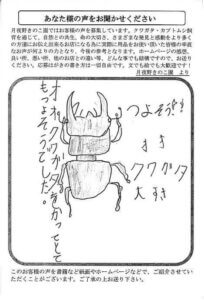 あなた様の声をお聞かせください
月夜野きのこ園ではお客様の声を募集しています。クワガタ・カブトムシ飼
育を通じ、自然との共生、命の大切さ、さまざまな発見と感動をより多く
の方達にお伝え出来るお店になる為に実際に用品をお使い頂いた皆様の率直
なお声が何よりの力となり、今後の参考となります。ホームページの感想、
良い所、悪い所、他のお店との違い等、どんな事でも結構ですので、お送り
ください。応募はがきの書き方は一切自由です。文でも絵でも大歓迎です！
月夜野きのこ園　より
つよそう!!
すき
クワガタ
大すき
オオクワガタ
かっこ
もつよそうでした。
このお客様の声を書籍など紙面やホームページなどで、ご紹介させていた
だくことがございます。ご了承の上お送り下さい。